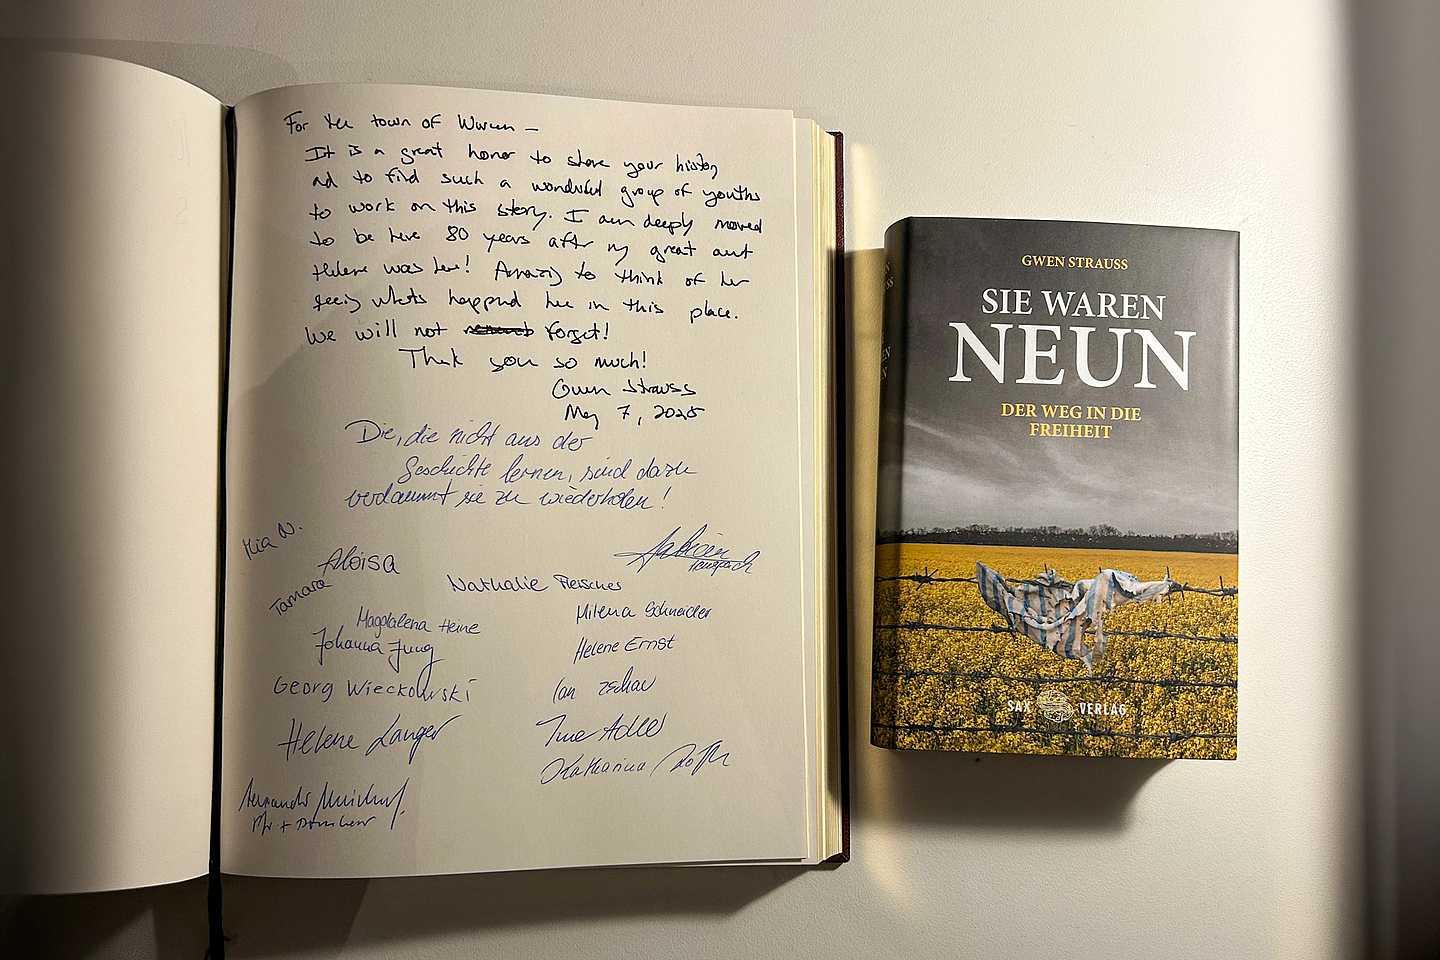 For the town of Wurzen –
It is a great honor to share your history
and to find such a wonderful group of youths
to work on this story. I am deeply moved
to be here 80 years after my great aunt
Helene was here! Amazing to think of her
seeing whats happend here in this place.
We will not forget!
Thank you so much!
Gwen Strauss
May 7, 2025
Die, die nicht aus der
Geschichte lernen, sind dazu
verdammt sie zu wiederholen!
Mia N.
Aloisa
Tamara
Nathalie Fleischer
Magdalena Heine
Milena Schneider
Johanna Jung
Helene Ernst
Georg Wieckowski
Ian Zschau
Helene Langer
Adler
Katharina
GWEN STRAUSS
SIE WAREN
NEUN
DER WEG IN DIE
FREIHEIT
SAX VERLAG